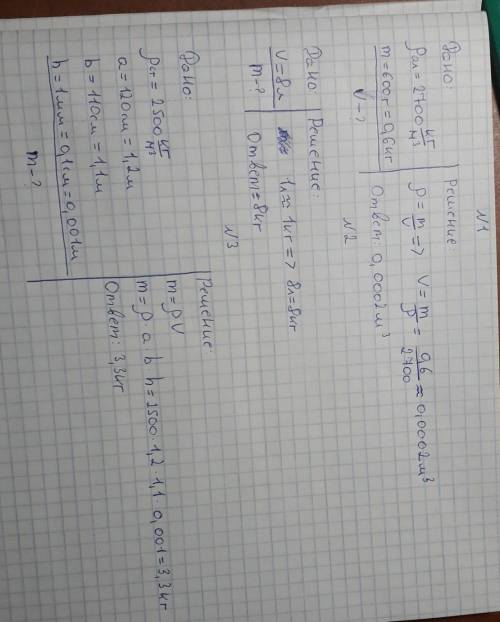 N1
Дано:
ρал = 2700 кг/м³
m = 600г = 0,6кг
V - ?
Решение:
ρ = m/V => V = m/ρ = 0,6/2700 ≈ 0,0002м³
Ответ: 0,0002м³
N2
Дано:
V = 8л
m - ?
Решение:
1л ≈ 1кг => 8л = 8кг
Ответ = 8кг
N3
Дано:
ρст = 2500 кг/м³
a = 120см = 1,2м
b = 110см = 1,1м
h = 1мм = 0,1см = 0,001м
m - ?
Решение
m = ρV
m = ρ · a · b h = 2500 · 1,2 · 1,1 · 0,001 = 3,3кг
Ответ: 3,3кг